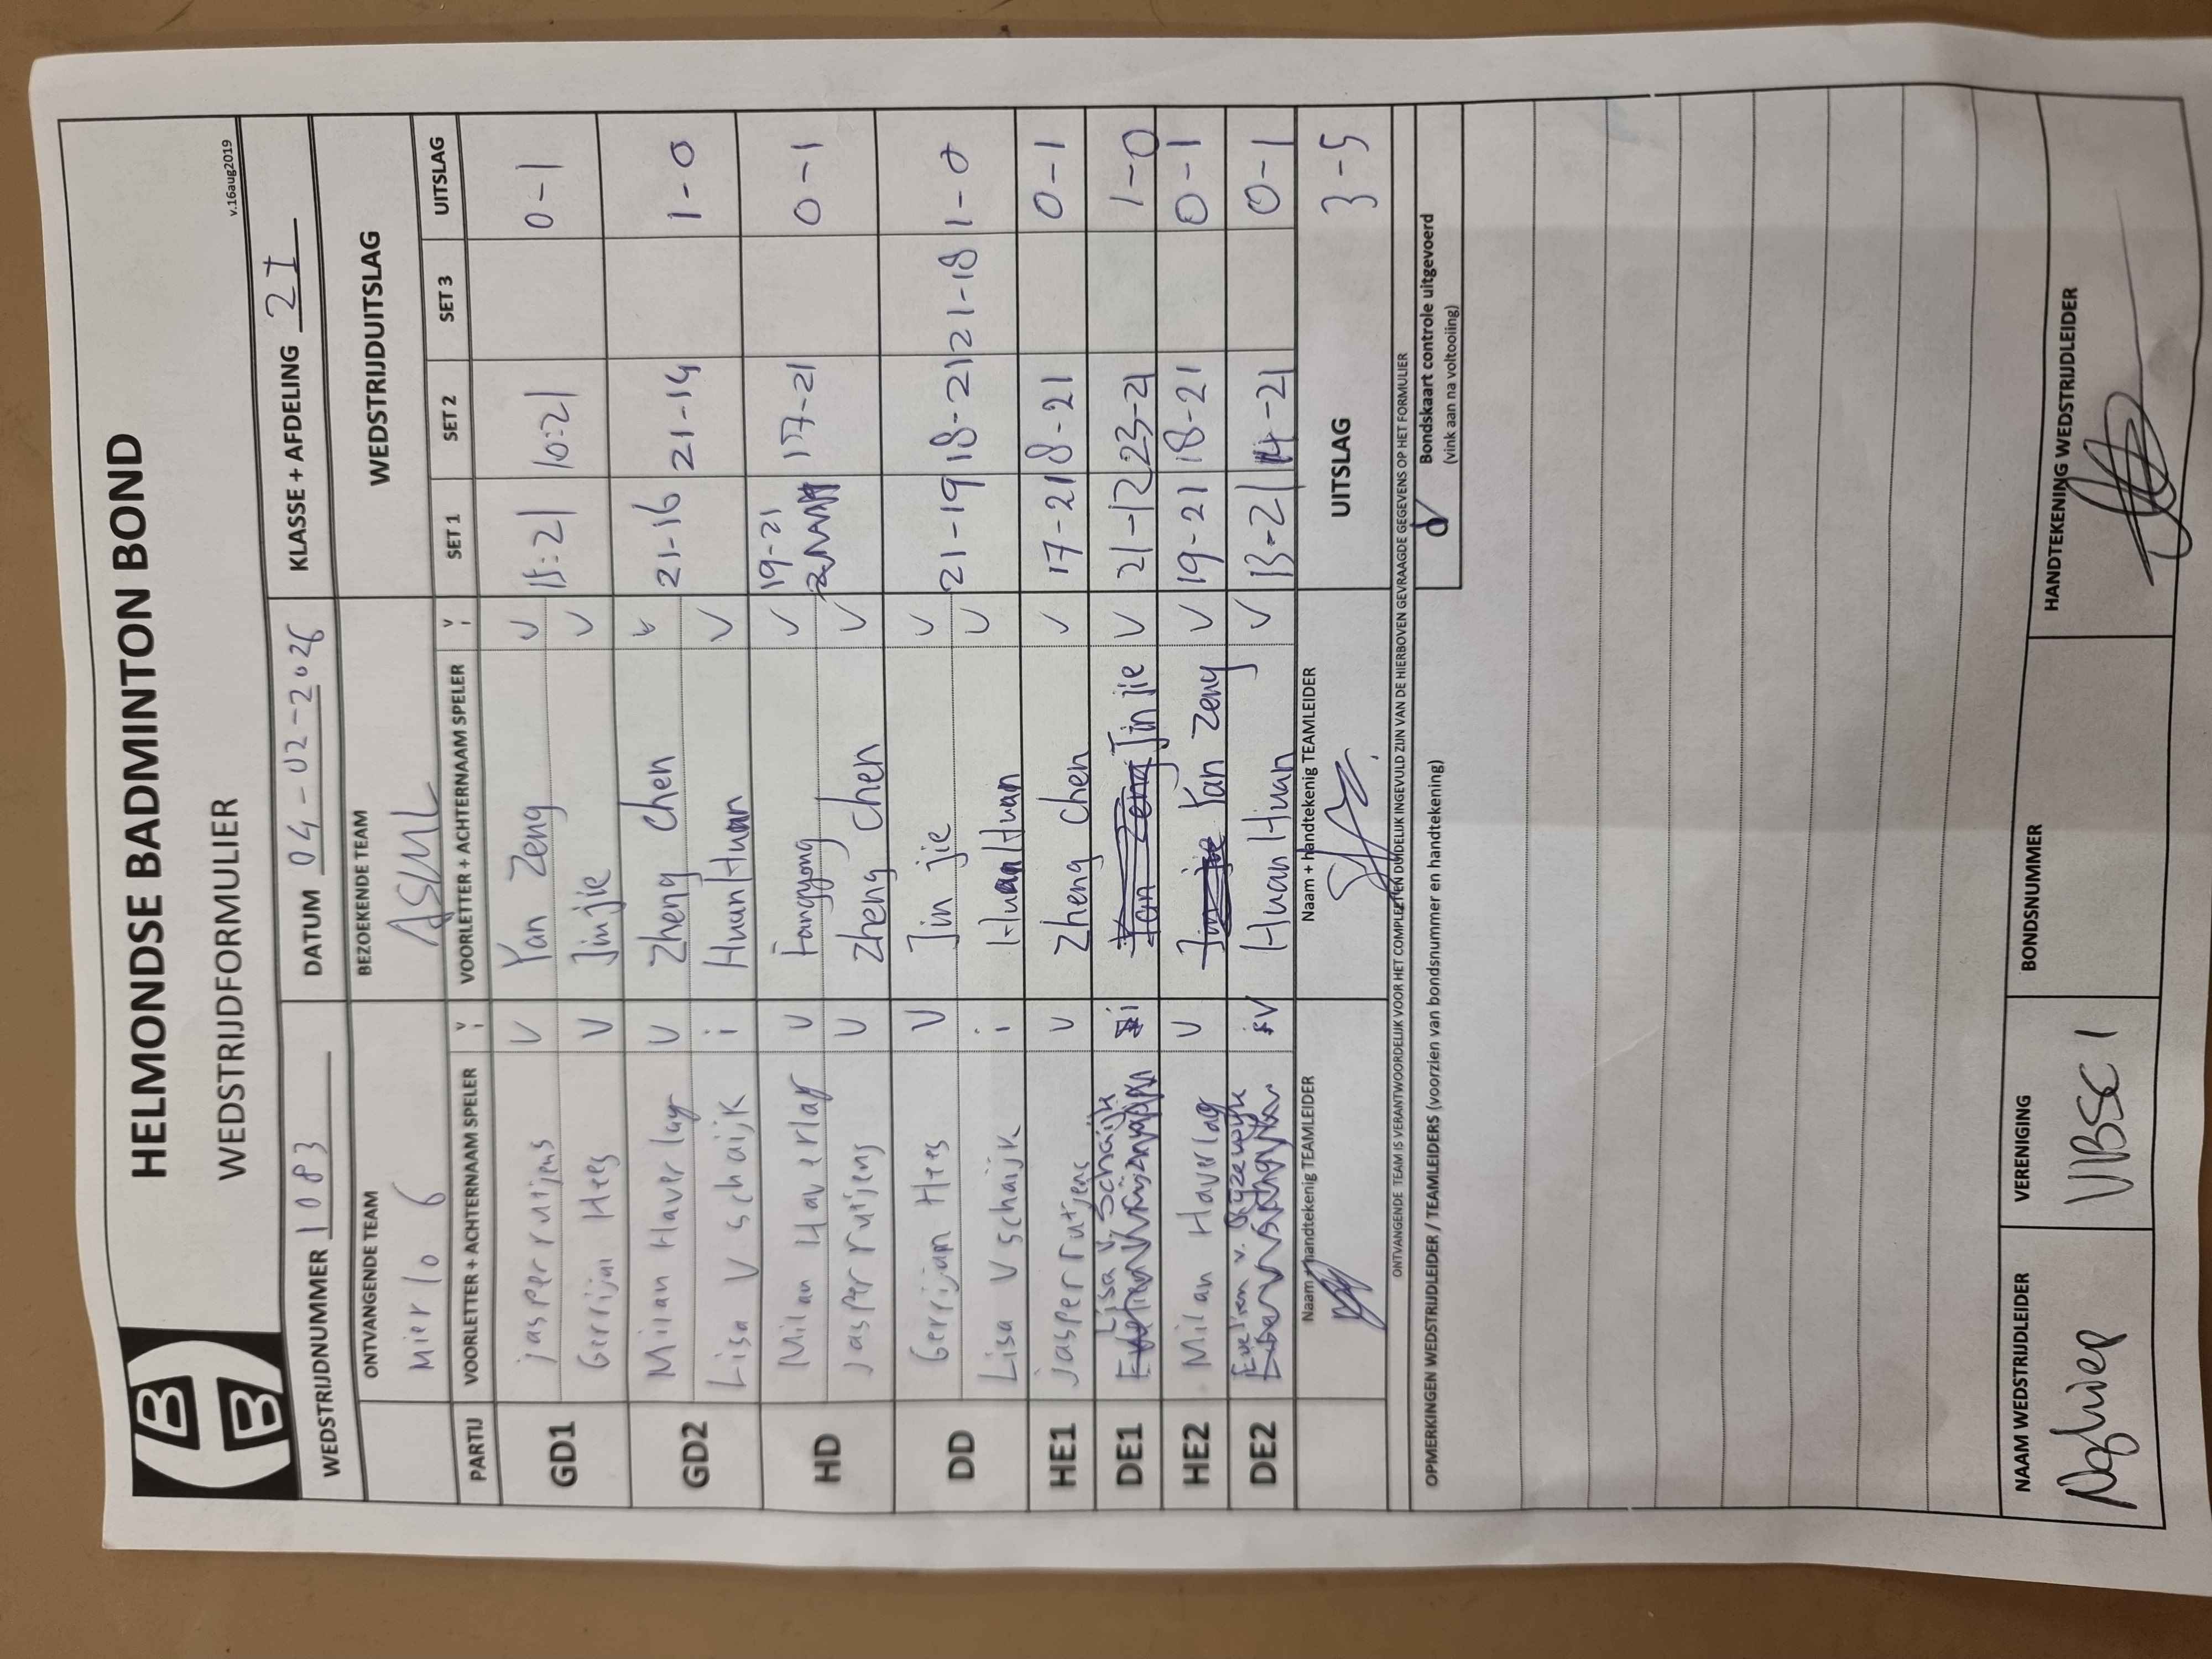 HELMONDSE BADMINTON BOND
WEDSTRIJDFORMULIER
v.16aug2019
WEDSTRIJDNUMMER 1083 DATUM 04-02-2026 KLASSE + AFDELING 2I
ONTVANGENDE TEAM BEZOEKENDE TEAM WEDSTRIJDUITSLAG
Mierlo 6 ASML
PARTIJ VOORLETTER + ACHTERNAAM SPELER V i VOORLETTER + ACHTERNAAM SPELER V i SET 1 SET 2 SET 3 UITSLAG
GD1 jasper rutjens V Yan Zeng V 15:21 10:21 0-1
Gerrijan Hees V Jinjie V
GD2 Milan Haverlag V Zheng Chen V 21-16 21-14 1-0
Lisa V schaijk i Huan Huan V
HD Milan Haverlag V Fangyong V 19-21 17-21 0-1
Jasper rutjens V Zheng Chen V
DD Gerrijan Hees V Jin jie V 21-19 18-21 21-18 1-0
Lisa V schaijk i Huan Huan V
HE1 jasper rutjens V Zheng Chen V 17-21 8-21 0-1
DE1 Lisa v. Schaijk i Yan Zeng Jin jie V 21-12 23-21 1-0
HE2 Milan Haverlag V Jin jie Yan Zeng V 19-21 18-21 0-1
DE2 Evelien v. V Huan Huan V 13-21 14-21 0-1
Naam + handtekenig TEAMLEIDER Naam + handtekenig TEAMLEIDER UITSLAG 3-5
ONTVANGENDE TEAM IS VERANTWOORDELIJK VOOR HET COMPLEET EN DUIDELIJK INGEVULD ZIJN VAN DE HIERBOVEN GEVRAAGDE GEGEVENS OP HET FORMULIER
OPMERKINGEN WEDSTRIJDLEIDER / TEAMLEIDERS (voorzien van bondsnummer en handtekening)
Bondskaart controle uitgevoerd
(vink aan na voltooiing)
NAAM WEDSTRIJDLEIDER VERENIGING BONDSNUMMER HANDTEKENING WEDSTRIJDLEIDER